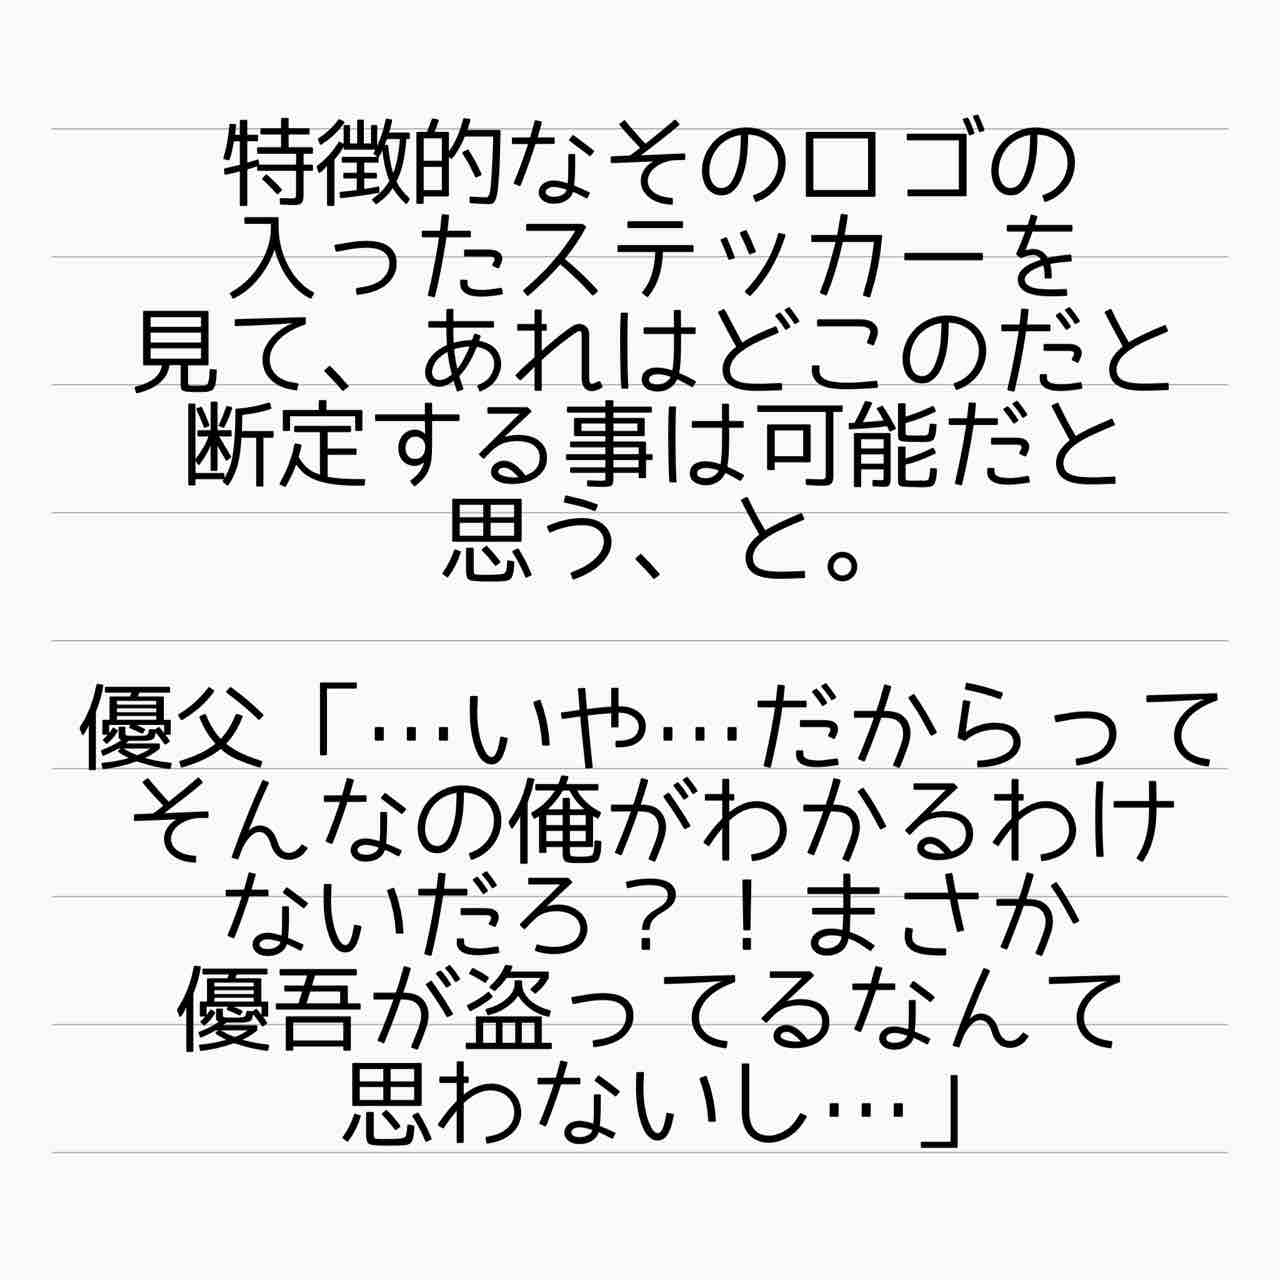 特徴的なそのロゴの
入ったステッカーを
見て、あれはどこのだと
断定する事は可能だと
思う、と。
優父「…いや…だからって
そんなの俺がわかるわけ
ないだろ？！まさか
優吾が盗ってるなんて
思わないし…」